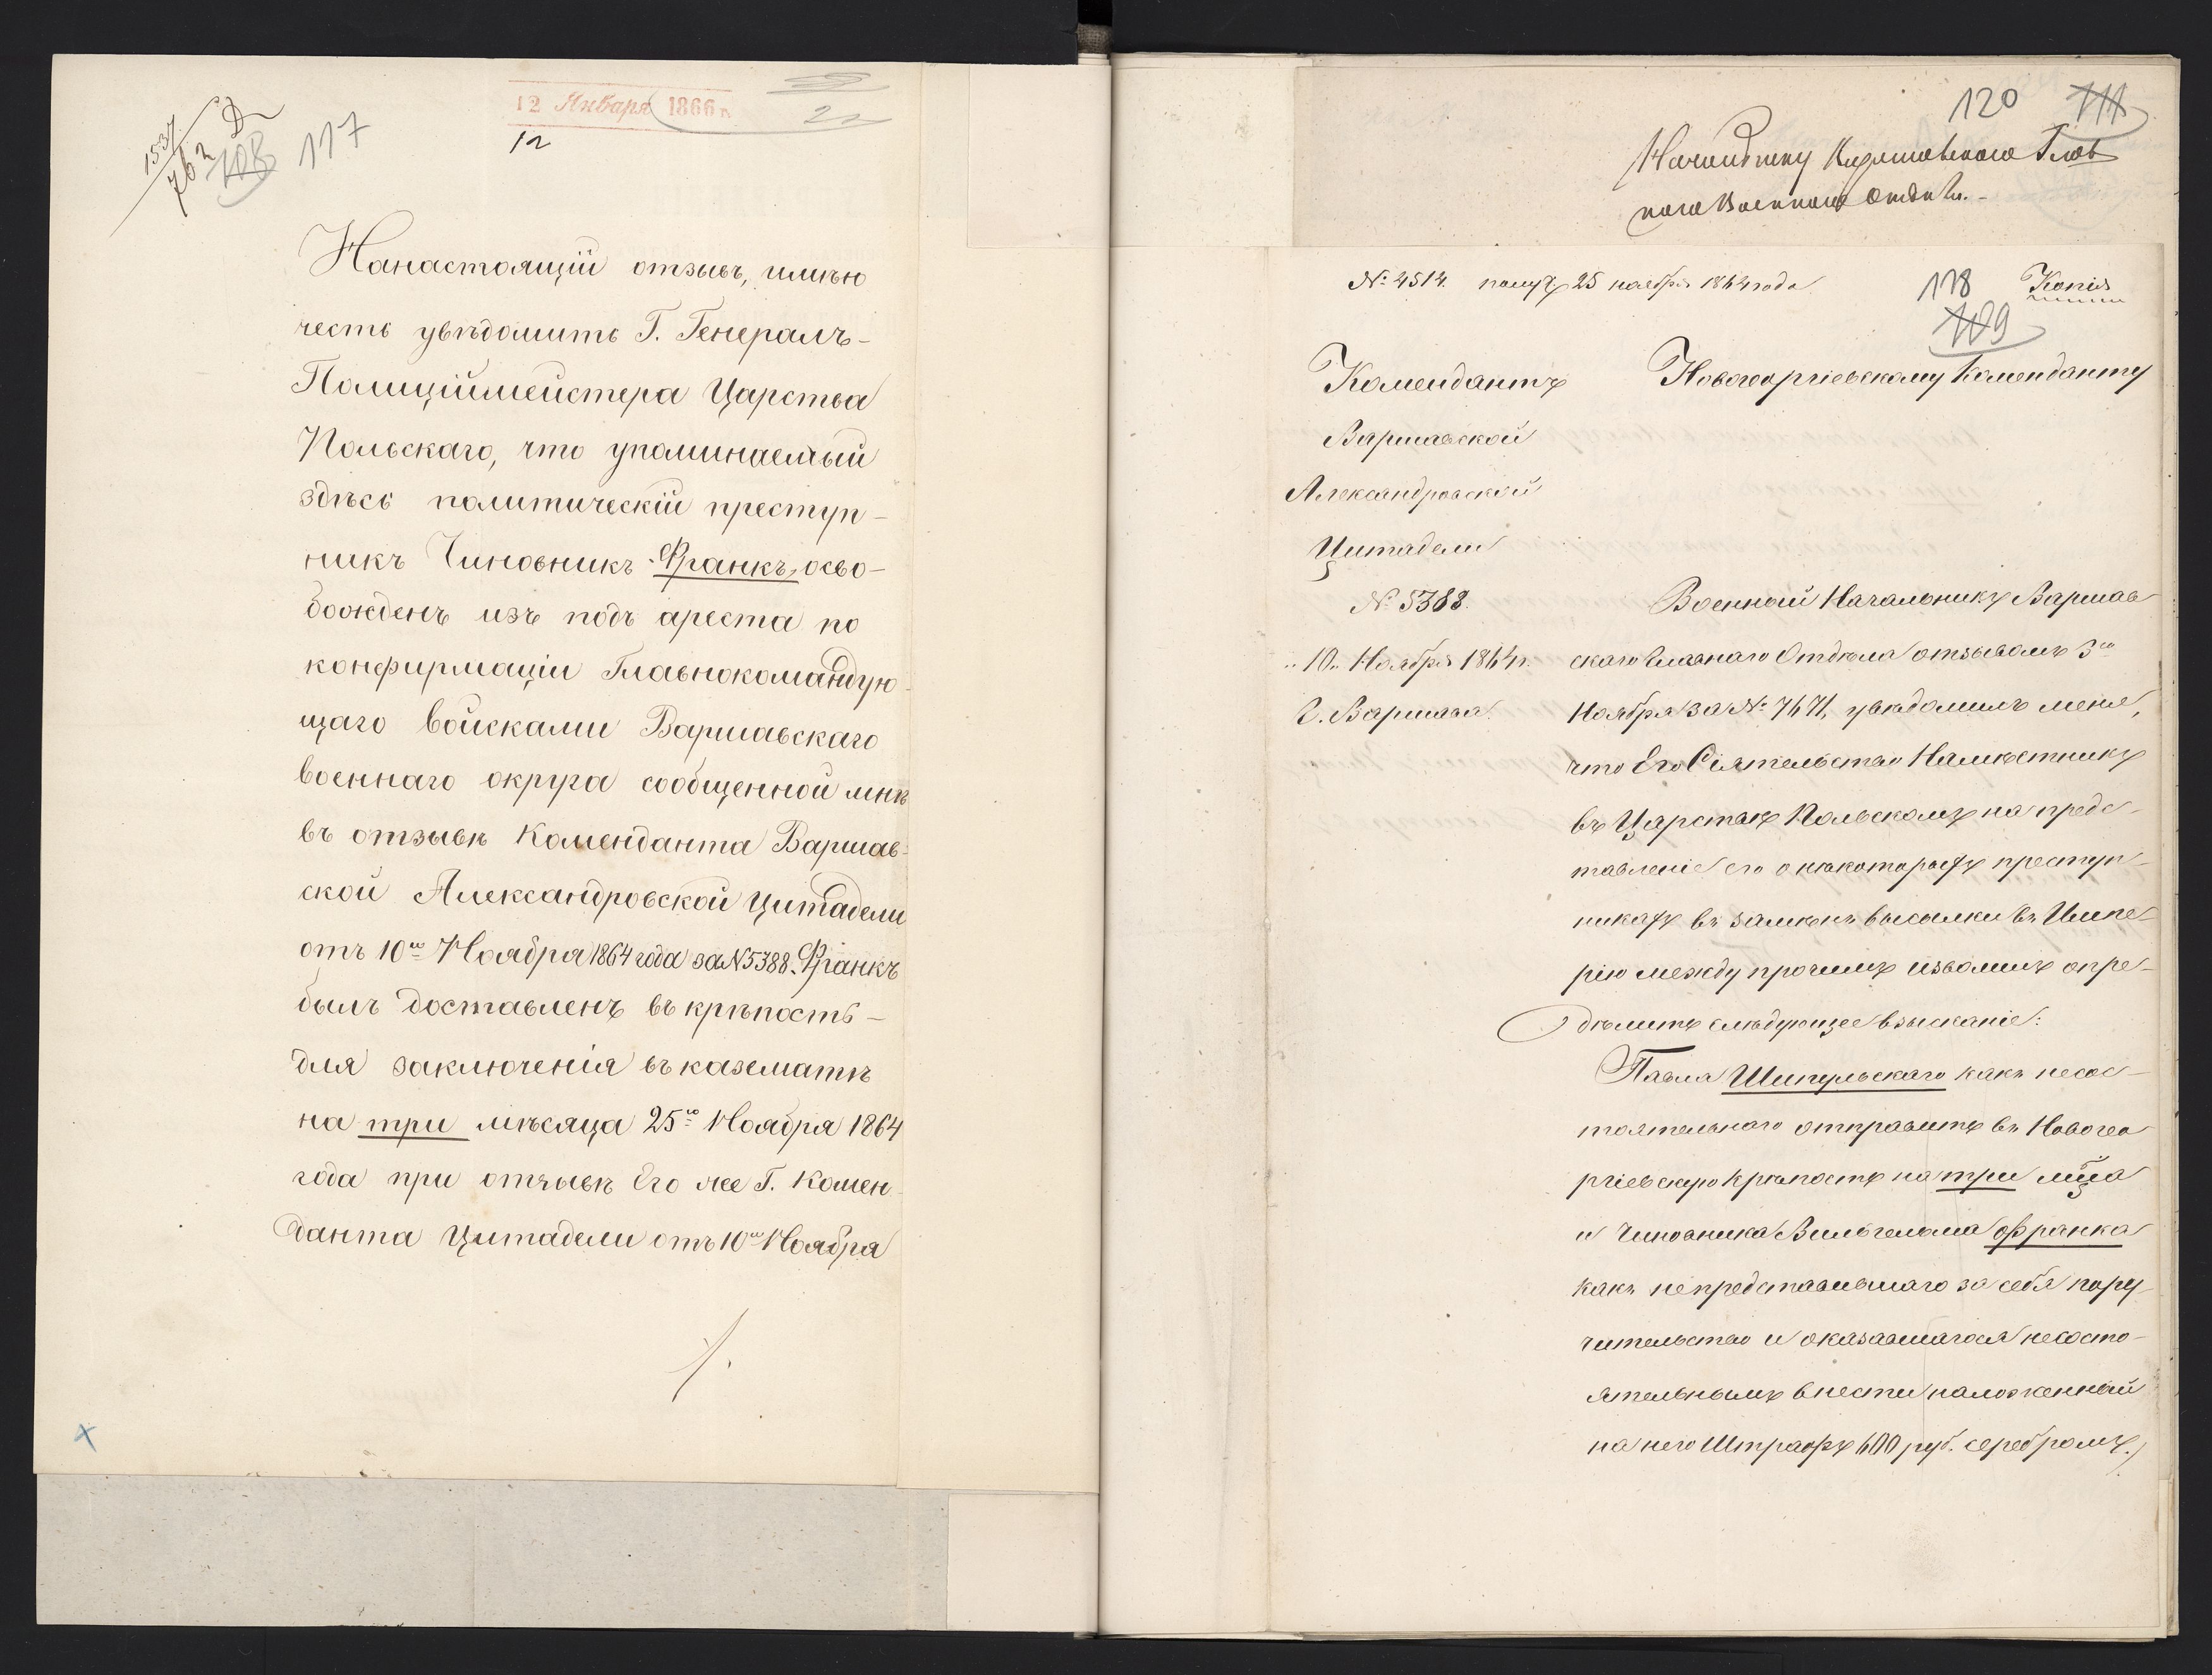 1537
762
108
117
12 Января 1866 г.
12
На настоящій отзывъ, имѣю
честь увѣдомить Г. Генералъ-
Полиціймейстера Царства
Польскаго, что упоминаемый
здѣсь политическій преступ-
никъ Чиновникъ Франкъ, осво-
божденъ изъ подъ ареста по
конфирмаціи Главнокомандую-
щаго войсками Варшавскаго
военнаго округа сообщенной мнѣ
въ отзывѣ Коменданта Варшав-
ской Александровской Цитадели
отъ 10го Ноября 1864 года за N 5388. Франкъ
былъ доставленъ въ крѣпость -
для заключенія въ казематѣ
на три мѣсяца 25го Ноября 1864
года при отзывѣ Его же Г. Комен-
данта Цитадели отъ 10го Ноября
120 111
Начальнику Варшавскаго Глав
наго Военнаго Отдѣла.-
№ 4514. получ 25 ноября 1864 года
118 Копія
109
Комендантъ
Варшавской
Александровской
Цитадели
№ 5388.
"10" Ноября 1864 г.
Г. Варшава.
Новогеоргіевскому Коменданту
Военный Начальникъ Варшав
скаго Главнаго Отдѣла отзывомъ 3го
Ноября за № 7671, увѣдомилъ меня,
что Его Сіятельство Намѣстникъ
въ Царствѣ Польскомъ на предс-
тавленіе его о нѣкоторыхъ преступ-
никахъ въ замѣнъ высылки въ Импе-
рію между прочимъ изволилъ опре-
дѣлить слѣдующее взысканіе:
Павла Шипульскаго какъ несос-
тоятельнаго отправить въ Новогео
ргіевскую Крѣпость на три мца
и Чиновника Вильгельма Франка
какъ непредставившаго за себя пору-
чительство и оказавшагося несосто-
ятельнымъ внести наложенный
на него Штрафъ 600 руб. серебромъ.